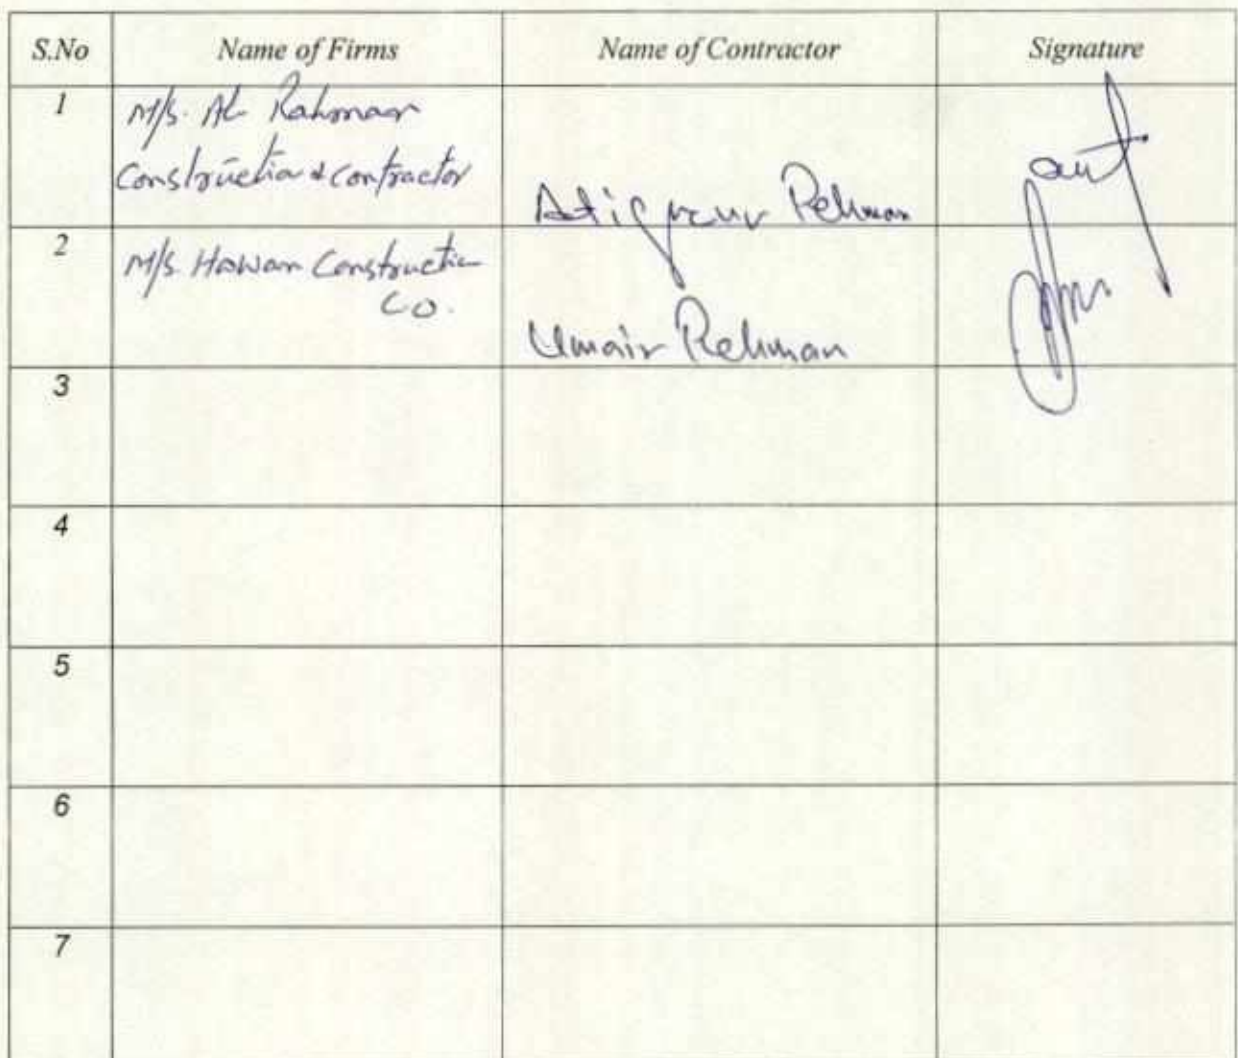 S.No Name of Firms Name of Contractor Signature
1 M/s. Al Rahman
Construction & Contractor
Rehman
2 M/s. Construction
Co.
Umair Rehman
3
4
5
6
7